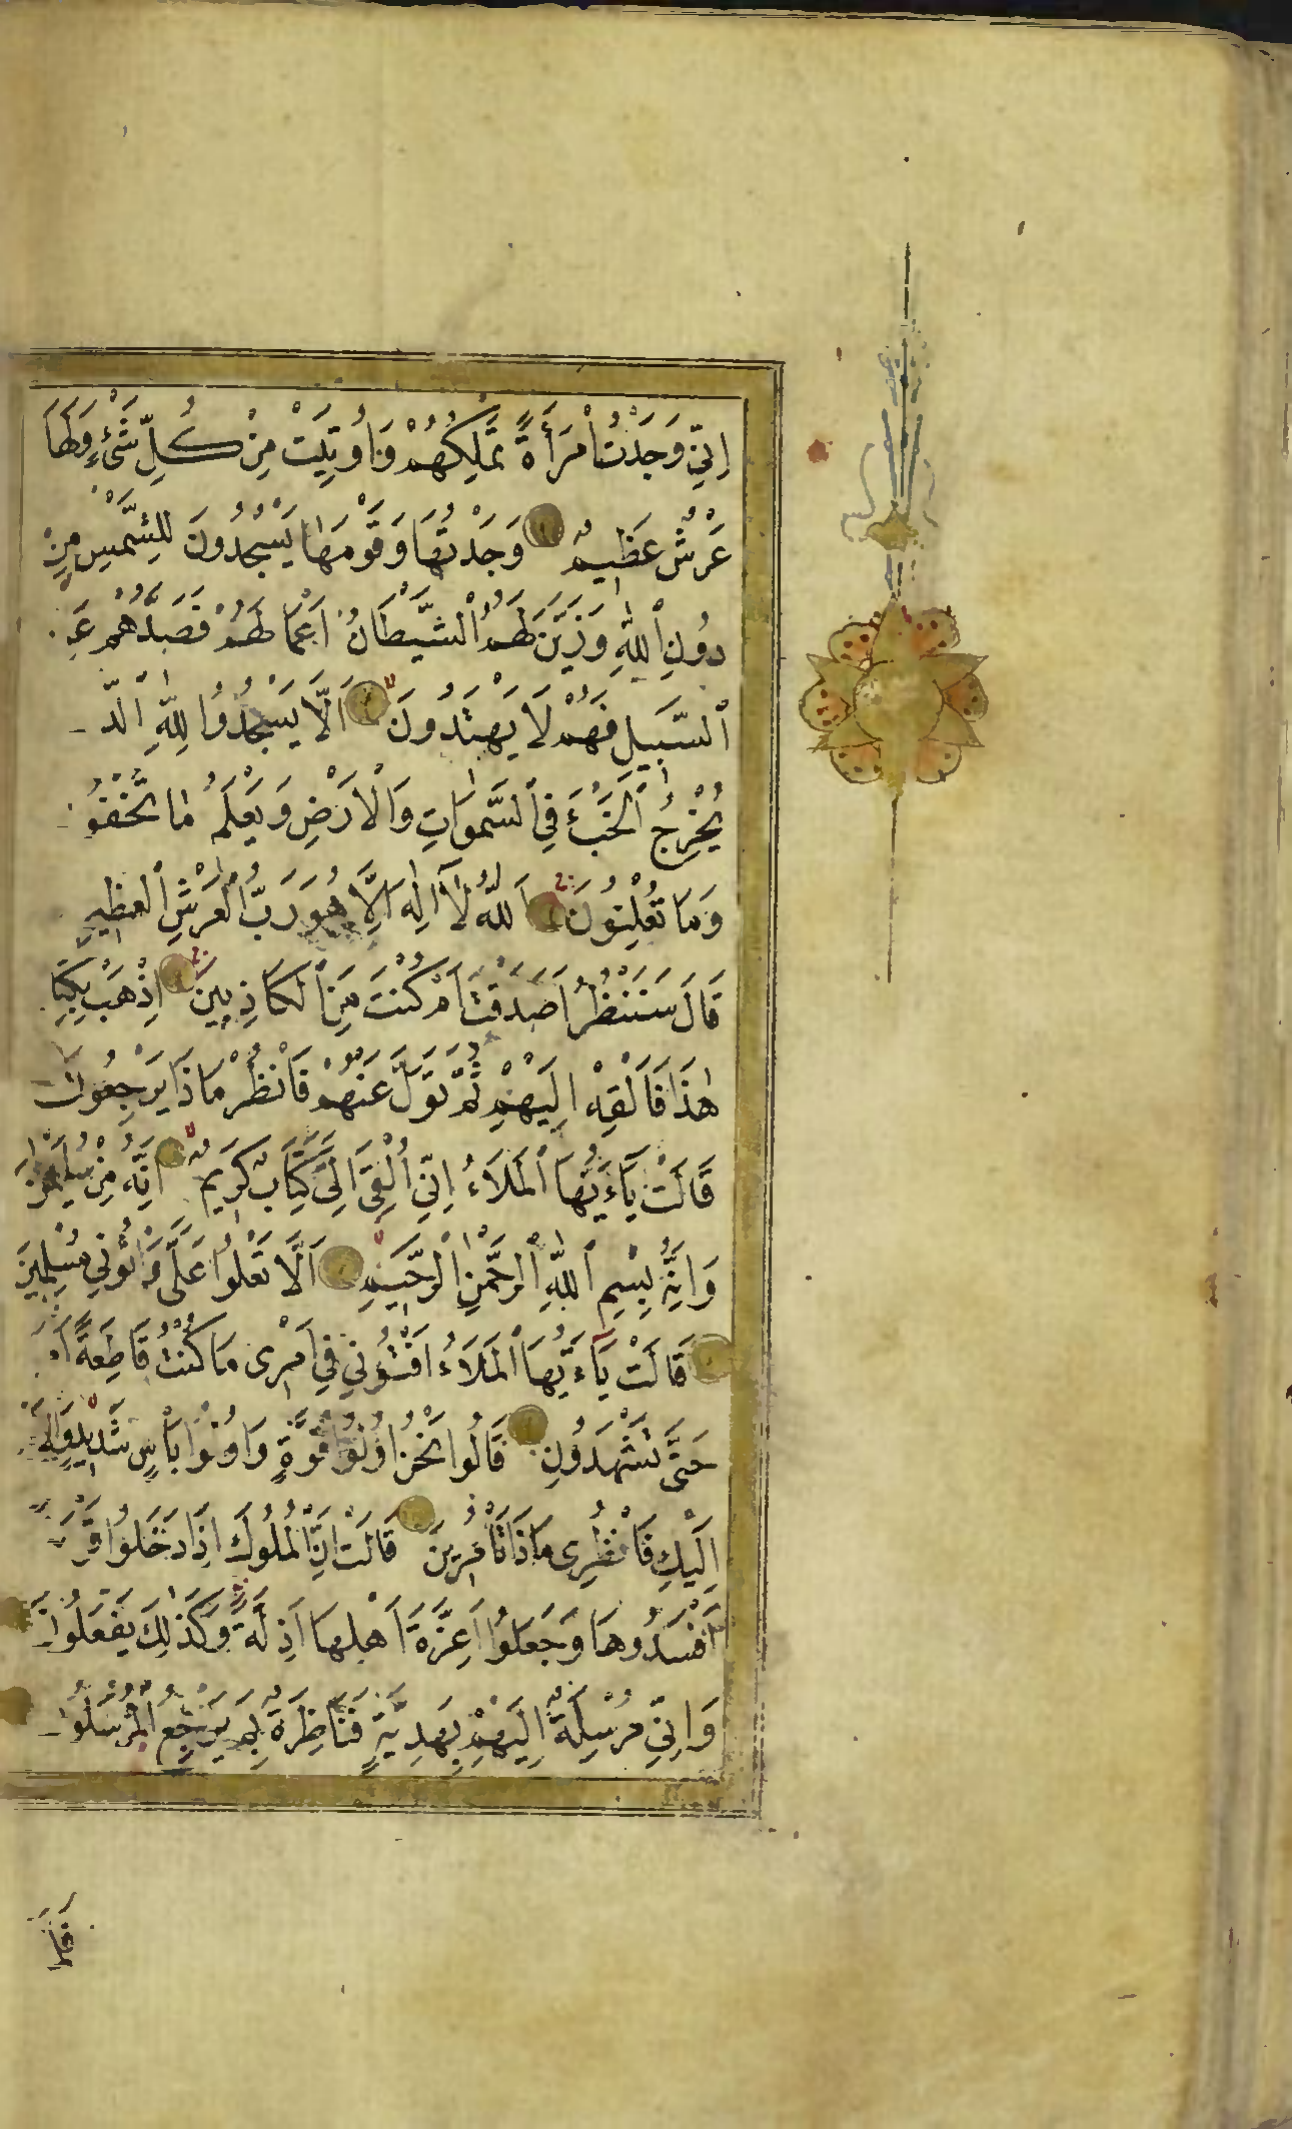 اِنِّي وَجَدْتُ امْرَأَةً تَمْلِكُهُمْ وَاُوتِيَتْ مِنْ كُلِّ شَيْءٍ وَلَهَا
عَرْشٌ عَظِيمٌ وَجَدْتُهَا وَقَوْمَهَا يَسْجُدُونَ لِلشَّمْسِ مِنْ
دُونِ اللّٰهِ وَزَيَّنَ لَهُمُ الشَّيْطَانُ اَعْمَالَهُمْ فَصَدَّهُمْ عَنِ
السَّبِيلِ فَهُمْ لَا يَهْتَدُونَ اَلَّا يَسْجُدُوا لِلّٰهِ الَّذ
يُخْرِجُ الْخَبْءَ فِي السَّمٰوَاتِ وَالْاَرْضِ وَيَعْلَمُ مَا تُخْفُو
وَمَا تُعْلِنُونَ اَللّٰهُ لَا اِلٰهَ اِلَّا هُوَ رَبُّ الْعَرْشِ الْعَظِيمِ
قَالَ سَنَنْظُرُ اَصَدَقْتَ اَمْ كُنْتَ مِنَ الْكَاذِبِينَ اِذْهَبْ بِكِتَا
هٰذَا فَاَلْقِهْ اِلَيْهِمْ ثُمَّ تَوَلَّ عَنْهُمْ فَانْظُرْ مَاذَا يَرْجِعُونَ
قَالَتْ يَاءَيُّهَا الْمَلَاءُ اِنِّي اُلْقِيَ اِلَيَّ كِتَابٌ كَرِيمٌ اِنَّهُ مِنْ سُلَيْمٰنَ
وَاِنَّهُ بِسْمِ اللّٰهِ الرَّحْمٰنِ الرَّحِيمِ اَلَّا تَعْلُوا عَلَيَّ وَاْتُونِي مُسْلِمِينَ
قَالَتْ يَاءَيُّهَا الْمَلَاءُ اَفْتُونِي فِي اَمْرِى مَا كُنْتُ قَاطِعَةً اَمْ
حَتَّى تَشْهَدُونِ قَالُوا نَحْنُ اُولُوا قُوَّةٍ وَاُولُوا بَأْسٍ شَدِيدٍ وَالْ
اِلَيْكِ فَانْظُرِى مَاذَا تَأْمُرِينَ قَالَتْ اِنَّ الْمُلُوكَ اِذَا دَخَلُوا قَرْ
اَفْسَدُوهَا وَجَعَلُوا اَعِزَّةَ اَهْلِهَا اَذِلَّةً وَكَذٰلِكَ يَفْعَلُونَ
وَاِنِّي مُرْسِلَةٌ اِلَيْهِمْ بِهَدِيَّةٍ فَنَاظِرَةٌ بِمَ يَرْجِعُ الْمُرْسَلُو
فَلَمَّا